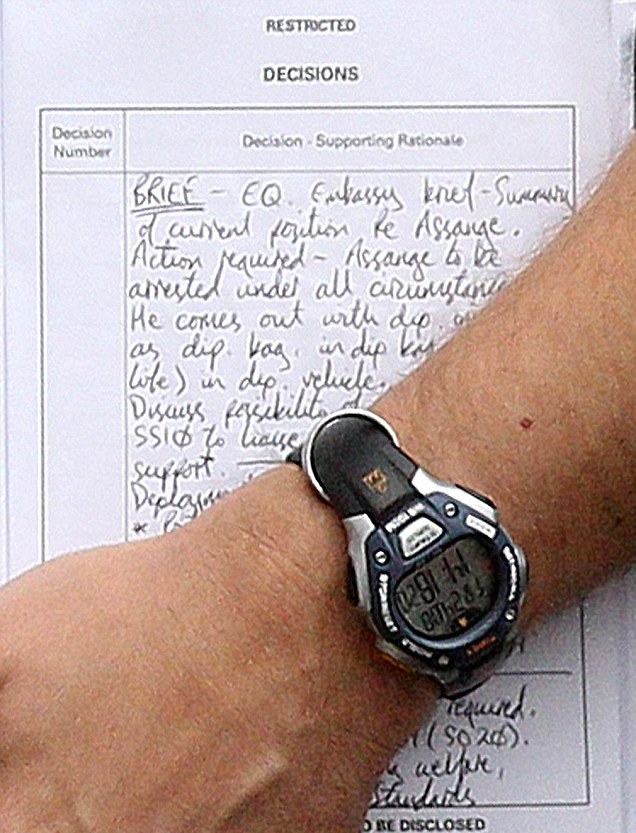 RESTRICTED
DECISIONS
Decision Number
Decision - Supporting Rationale
BRIEF - EQ. Embassy brief - Summary
of current position Re Assange.
Action required - Assange to be
arrested under all circumstance
He comes out with dip.
as dip. bag. in dip
life) in dip. vehicle.
Discuss possibility
SS10 to liaise
support.
*
required.
(SO20).
welfare,
Standards
O BE DISCLOSED